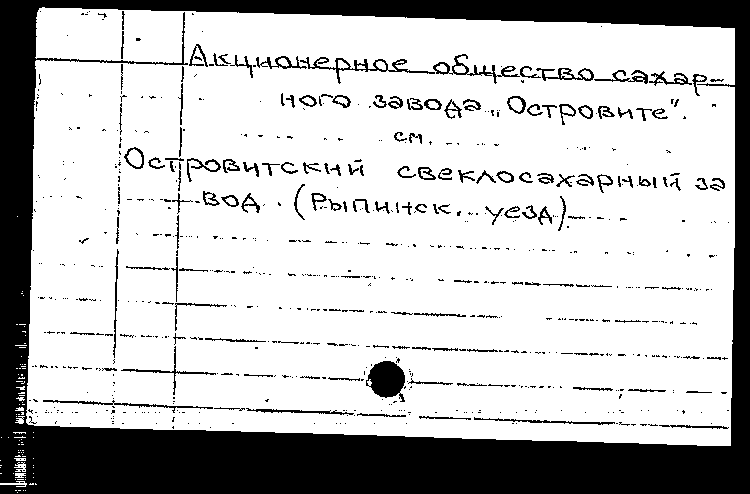 Акционерное общество сахар-
ного завода „Островите".
см.
Островитский свеклосахарный за
вод. (Рыпинск. уезд)